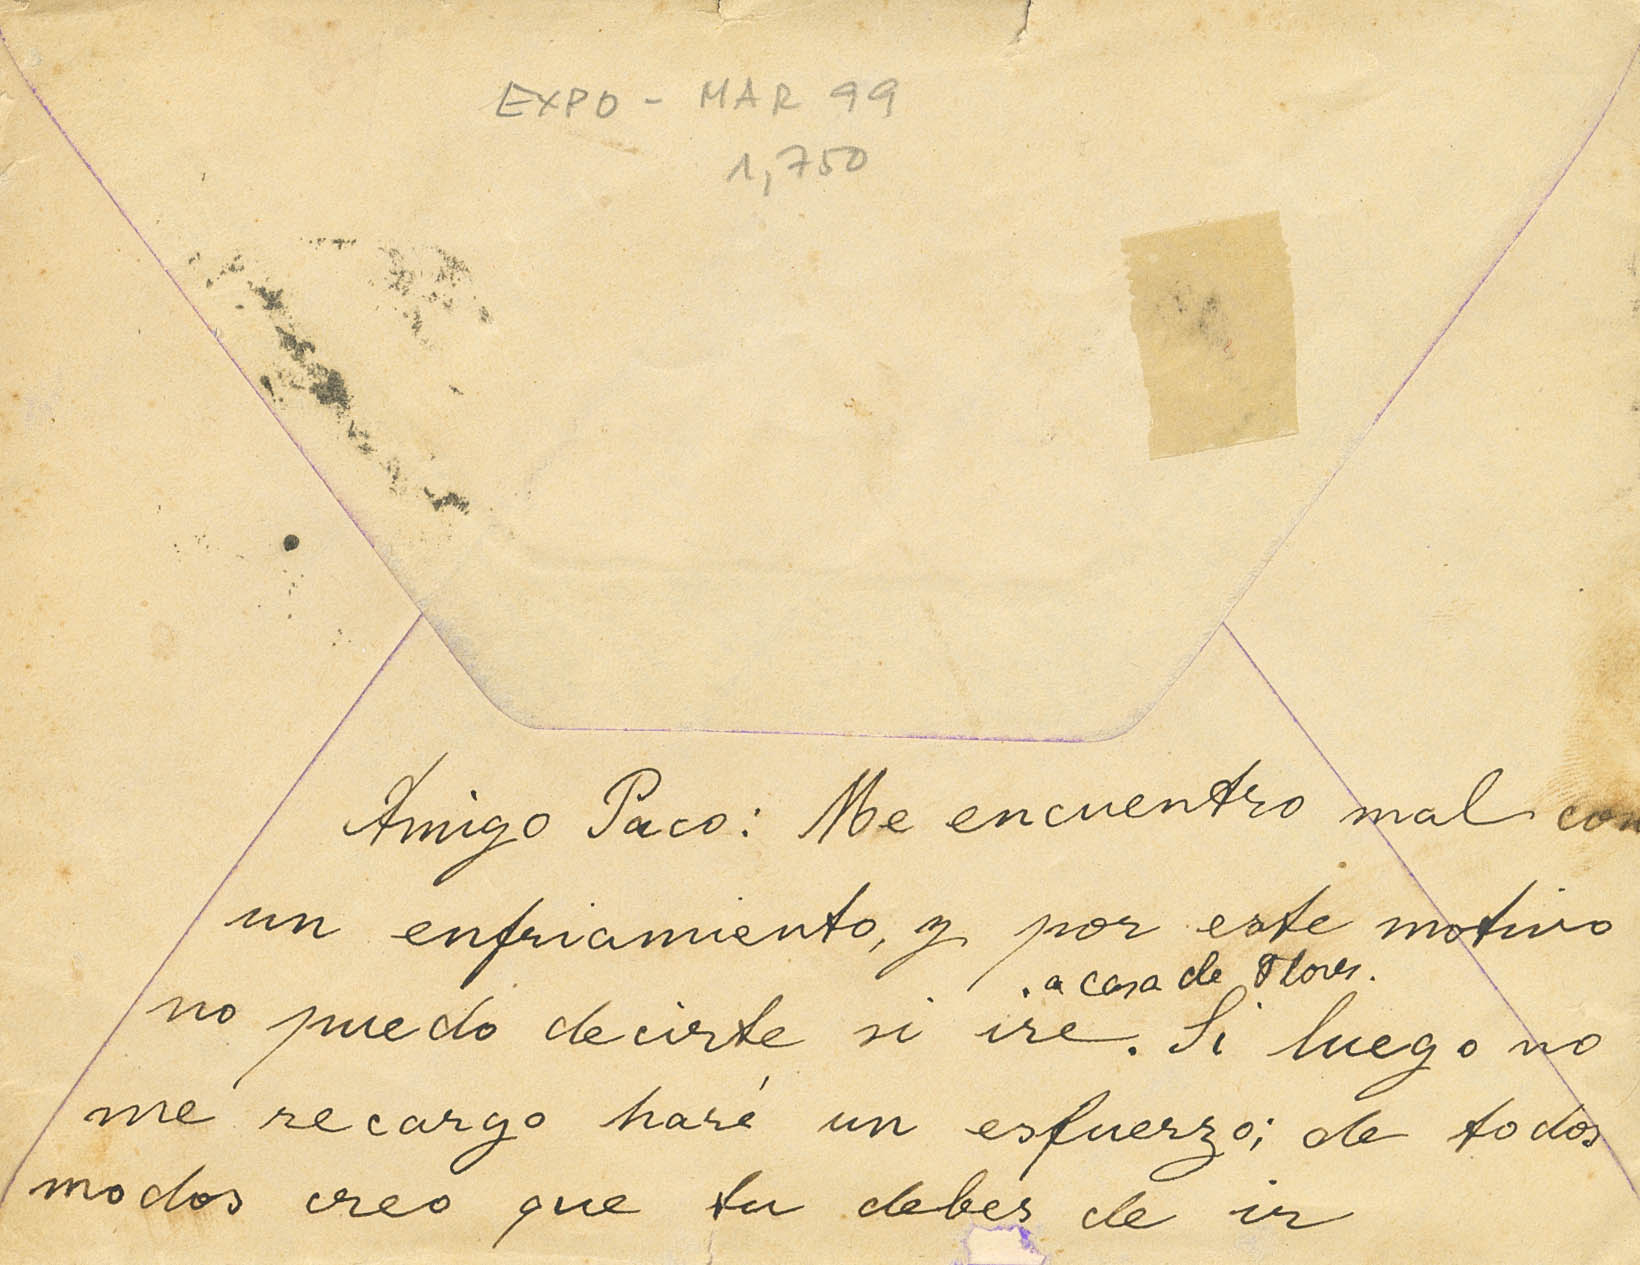 EXPO - MAR 99
1,750
Amigo Paco: Me encuentro mal con
un enfriamiento, y por este motivo
a casa de Flores.
no puedo decirte si ire. Si luego no
me recargo haré un esfuerzo; de todos
modos creo que tu debes de ir